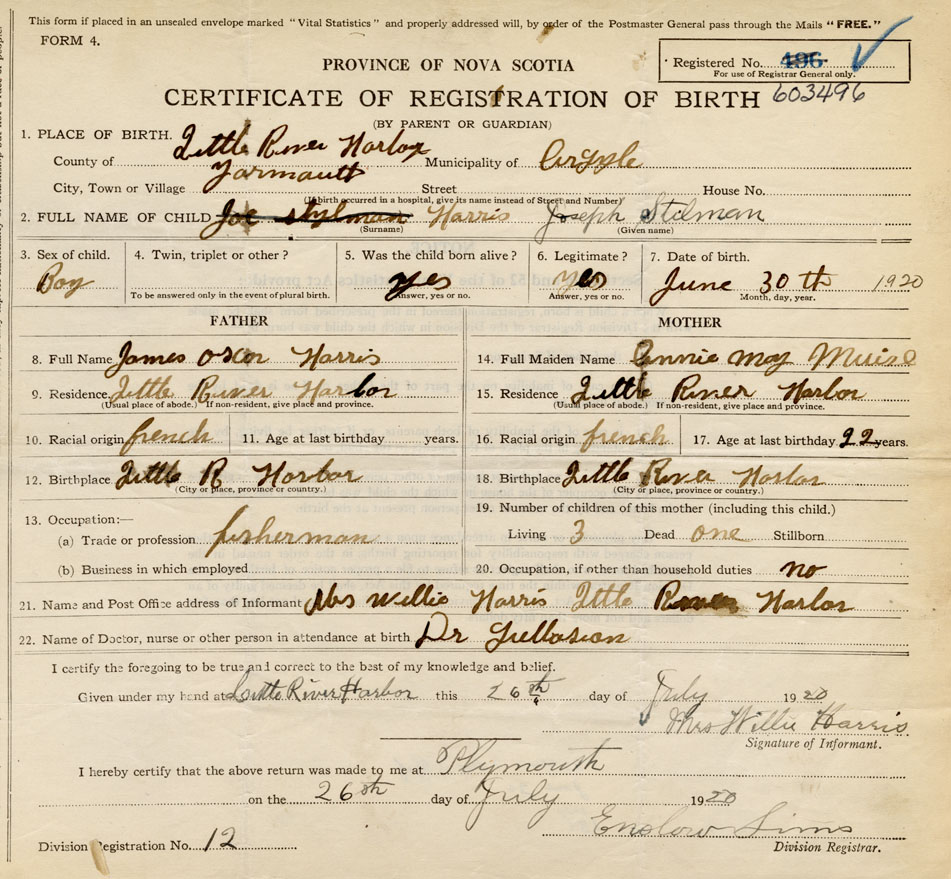 This form if placed in an unsealed envelope marked "Vital Statistics" and properly addressed will, by order of the Postmaster General pass through the Mails "FREE."
FORM 4.
Registered No. 496
For use of Registrar General only.
603496
PROVINCE OF NOVA SCOTIA
CERTIFICATE OF REGISTRATION OF BIRTH
(BY PARENT OR GUARDIAN)
1. PLACE OF BIRTH. Little River Harbor
County of Yarmouth Municipality of Argyle
City, Town or Village Street House No.
(If birth occurred in a hospital, give its name instead of Street and Number)
2. FULL NAME OF CHILD Joe Stylman Harris Joseph Stilman
(Surname) (Given name)
3. Sex of child. 4. Twin, triplet or other? 5. Was the child born alive? 6. Legitimate? 7. Date of birth.
Boy yes yes June 30th 1920
To be answered only in the event of plural birth. Answer, yes or no. Answer, yes or no. Month, day, year.
FATHER MOTHER
8. Full Name James Oscar Harris 14. Full Maiden Name Annie May Muise
9. Residence. Little River Harbor 15. Residence Little River Harbor
(Usual place of abode.) If non-resident, give place and province. (Usual place of abode.) If non-resident, give place and province.
10. Racial origin french 11. Age at last birthday years. 16. Racial origin french 17. Age at last birthday 22 years.
12. Birthplace Little R Harbor 18. Birthplace Little River Harbor
(City or place, province or country.) (City or place, province or country.)
13. Occupation:— 19. Number of children of this mother (including this child.)
(a) Trade or profession fisherman Living 3 Dead one Stillborn
(b) Business in which employed 20. Occupation, if other than household duties no
21. Name and Post Office address of Informant Mrs Willie Harris Little River Harbor
22. Name of Doctor, nurse or other person in attendance at birth Dr
I certify the foregoing to be true and correct to the best of my knowledge and belief.
Given under my hand at Little River Harbor this 26th day of July 1920
Mrs Willie Harris
Signature of Informant.
I hereby certify that the above return was made to me at Plymouth
on the 26th day of July 1920
Enslow Sims
Division Registration No. 12 Division Registrar.